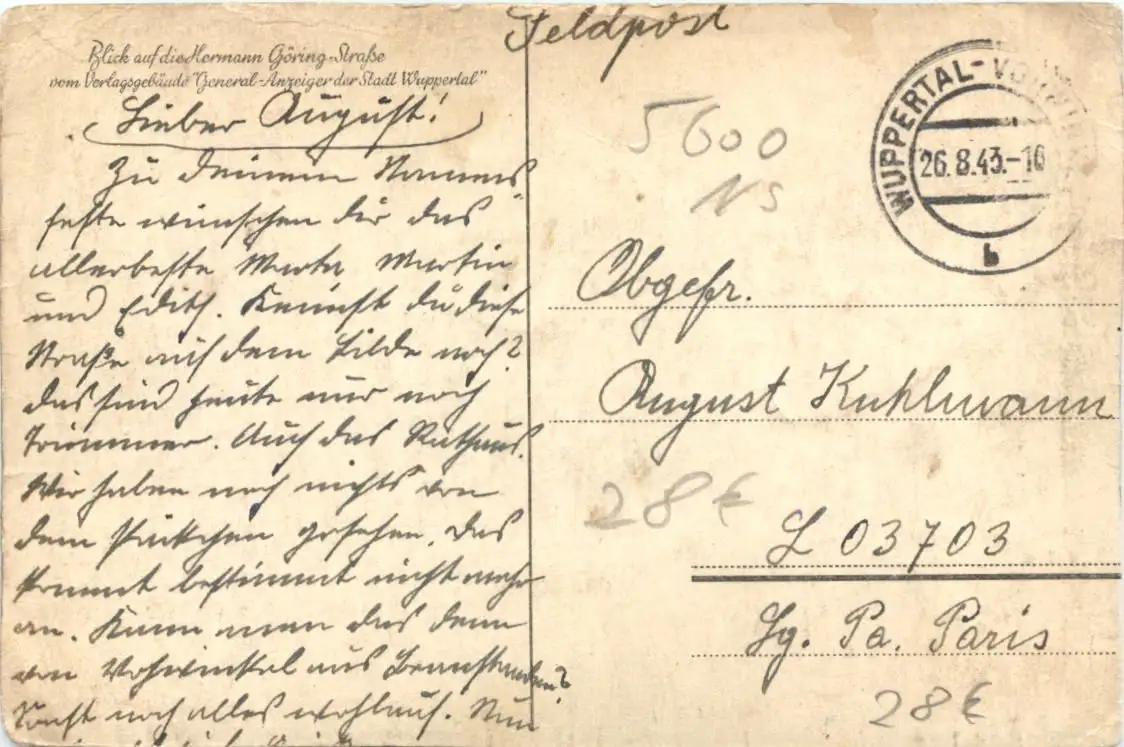 Feldpost
Blick auf die Hermann Göring-Straße
vom Verlagsgebäude "General-Anzeiger der Stadt Wuppertal"
Lieber August!
Zu deinem Namens-
feste wünschen dir das
allerbeste Marta Martin
und Edith. Kennst du diese
Straße auf dem Bilde noch?
Das sind heute nur noch
Trümmer. Auch das Rathaus.
Wir haben noch nichts von
dem Päckchen gesehen. Das
kommt bestimmt nicht mehr
an. Kann man das denn
von Vohwinkel aus beanstanden?
Sonst noch alles wohlauf. Nun
WUPPERTAL-VO
26.8.43.-16
b
5600
NS
Obgefr.
August Kuhlmann
28 €
L 03703
Lg. Pa. Paris
28 €